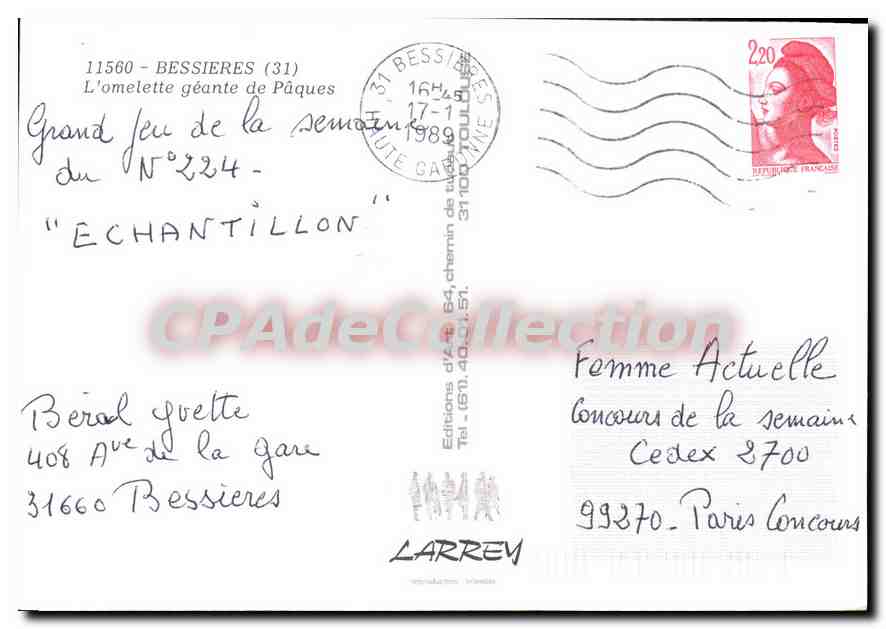 11560 - BESSIERES (31)
L'omelette géante de Pâques
Grand Jeu de la semaine
du N° 224 -
"ECHANTILLON"
Bérad Yvette
408 Ave de la Gare
31660 Bessieres
31 BESSIERES
16H45
17-1
1989
HTE GARONNE
Editions d'Art 64, chemin de
31100 TOULOUSE
Tel - (61). 40.01.51.
LARREY
2,20
POSTES
REPUBLIQUE FRANÇAISE
CPAdeCollection
Femme Actuelle
Concours de la semaine
Cedex 2700
99270 - Paris Concours